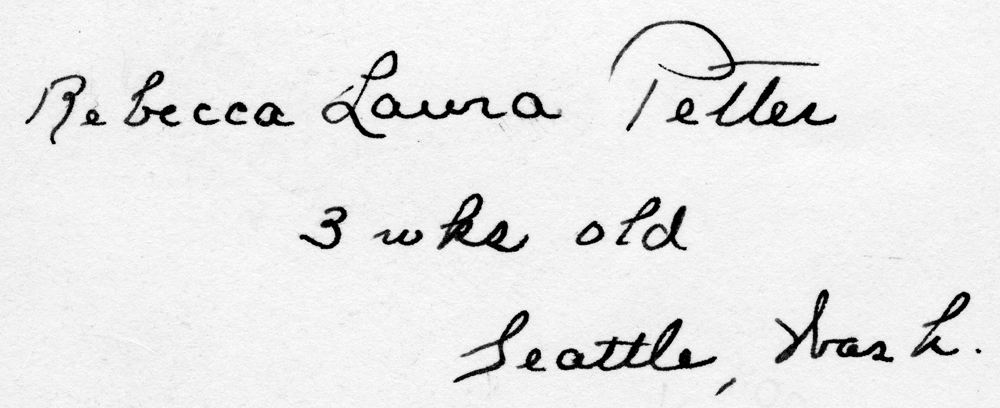 Rebecca Laura Petter
3 wks old
Seattle, Wash.